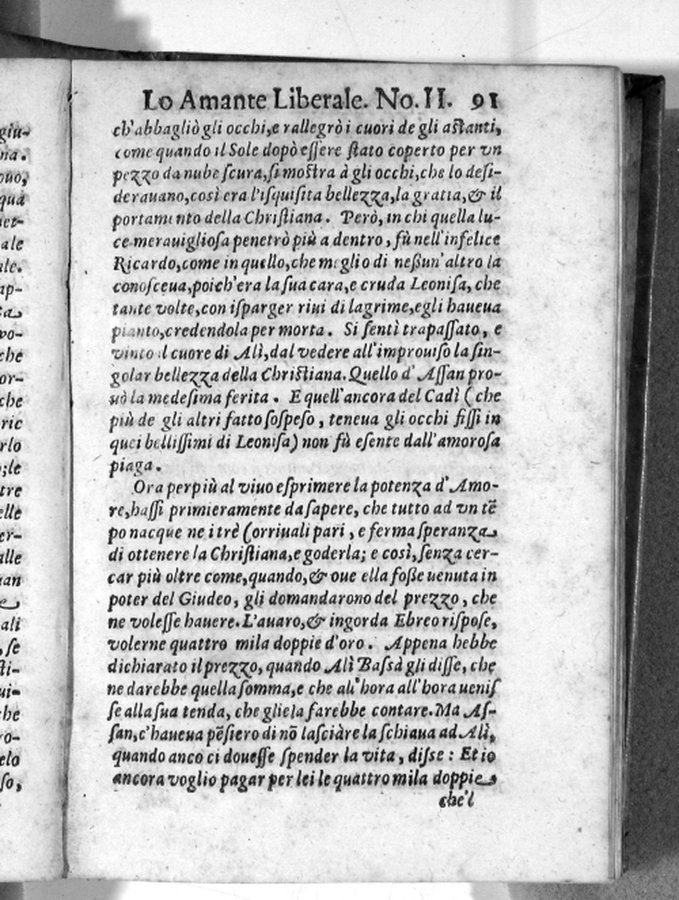 giu-
na.
ouo,
quà
et-
ale
ale.
ap-
ta
vo-
che
or-
che
ric
rlo
o;le
tre
elle
er-
alle
uan
e
ali
, se
ti-
ui-
he
ro-
elo
so,
Lo Amante Liberale. No. II. 91
ch'abbagliò gli occhi,e rallegrò i cuori de gli aſtanti,
come quando il Sole dopò eſſere ſtato coperto per vn
pezzo da nube ſcura,ſi moſtra à gli occhi,che lo deſi-
derauano,così era l'iſquiſita bellezza,la gratia,& il
portamento della Chriſtiana. Però, in chi quella lu-
ce merauiglioſa penetrò più a dentro, fù nell'infelice
Ricardo,come in quello,che meglio di neßun'altro la
conoſceua,poich'era la ſua cara,e cruda Leoniſa, che
tante volte,con iſparger riui di lagrime,egli haueua
pianto,credendola per morta. Si ſentì trapaſſato, e
vinto il cuore di Alì,dal vedere all'improuiſo la ſin-
golar bellezza della Chriſtiana.Quello d'Aſſan pro-
uò la medeſima ferita. E quell'ancora del Cadì (che
più de gli altri fatto ſoſpeſo, teneua gli occhi fiſſi in
quei belliſſimi di Leoniſa) non fù eſente dall'amoroſa
piaga.
Ora per più al viuo eſprimere la potenza d'Amo-
re,haſſi primieramente da ſapere, che tutto ad vn tẽ
po nacque ne i trè (orriuali pari, e ferma ſperanza
di ottenere la Chriſtiana,e goderla; e così,ſenza cer-
car più oltre come,quando,& oue ella foße uenuta in
poter del Giudeo, gli domandarono del prezzo, che
ne voleſſe hauere.L'auaro,& ingorda Ebreo riſpoſe,
volerne quattro mila doppie d'oro. Appena hebbe
dichiarato il prezzo, quando Alì Baſsà gli diſſe, che
ne darebbe quella ſomma,e che all'hora all'hora ueniſ
ſe alla ſua tenda, che gliela farebbe contare.Ma Aſ-
ſan,c'haueua pẽſiero di nõ laſciàre la ſchiaua ad Alì,
quando anco ci doueſſe ſpender la vita, diſſe: Et io
ancora voglio pagar per lei le quattro mila doppie,
che'l